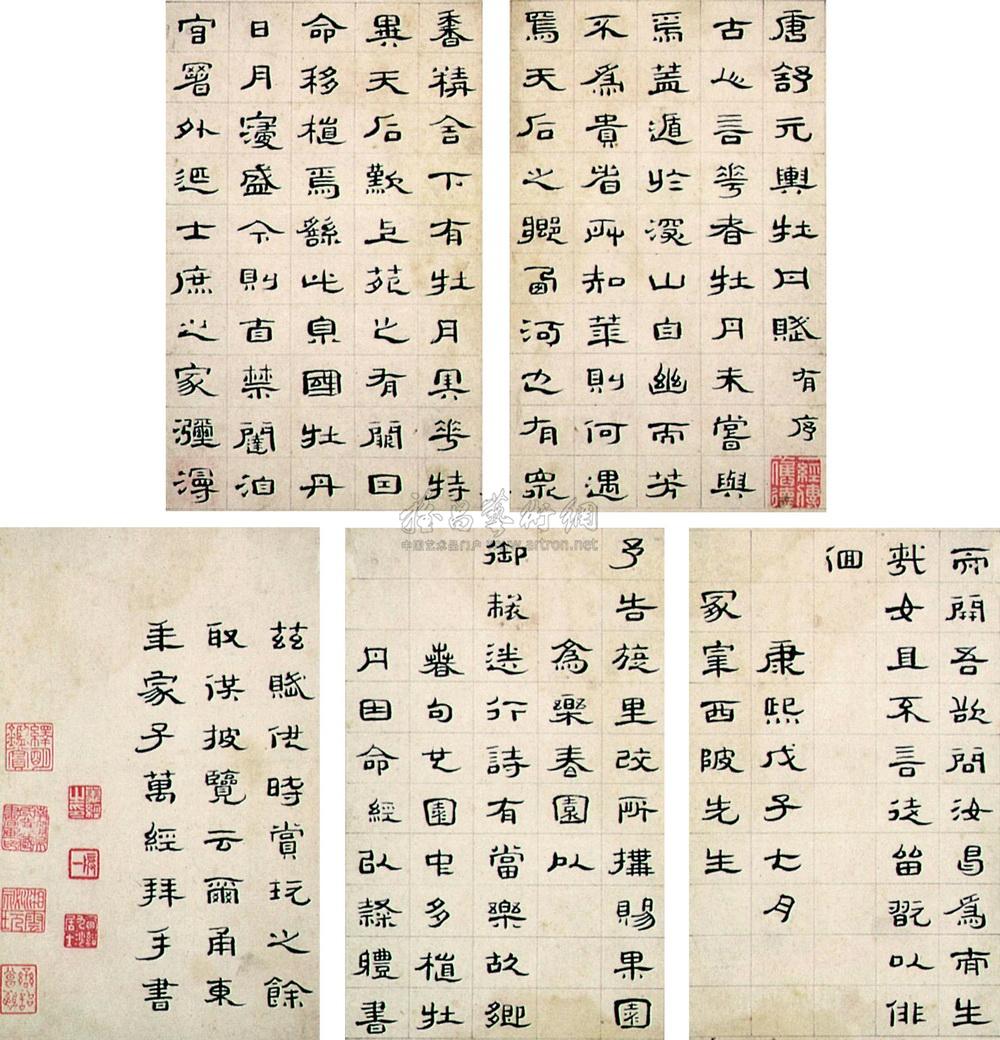 唐舒元輿牡丹賦有序
古之言花者牡丹未嘗與
焉蓋遁於深山自幽而芳
不爲貴者所知華則何遇
焉天后之鄉西河也有衆
香精舍下有牡丹其花特
異天后歎上苑之有闕因
命移植焉繇此京國牡丹
日月寖盛今則自禁闥洎
官署外延士庶之家瀰漫
而開吾欲問汝曷爲而生
哉女且不言徒留翫以徘
徊
康熙戊子七月
冢宰西陂先生
予告旋里改所搆賜果園
爲樂春園以
御製述行詩有當樂故鄉
春句也園中多植牡
丹因命經以隸體書
茲賦供時賞玩之餘
取供披覽云爾甬東
年家子萬經拜手書
雅昌藝術網
中国艺术品门户 www.artron.net